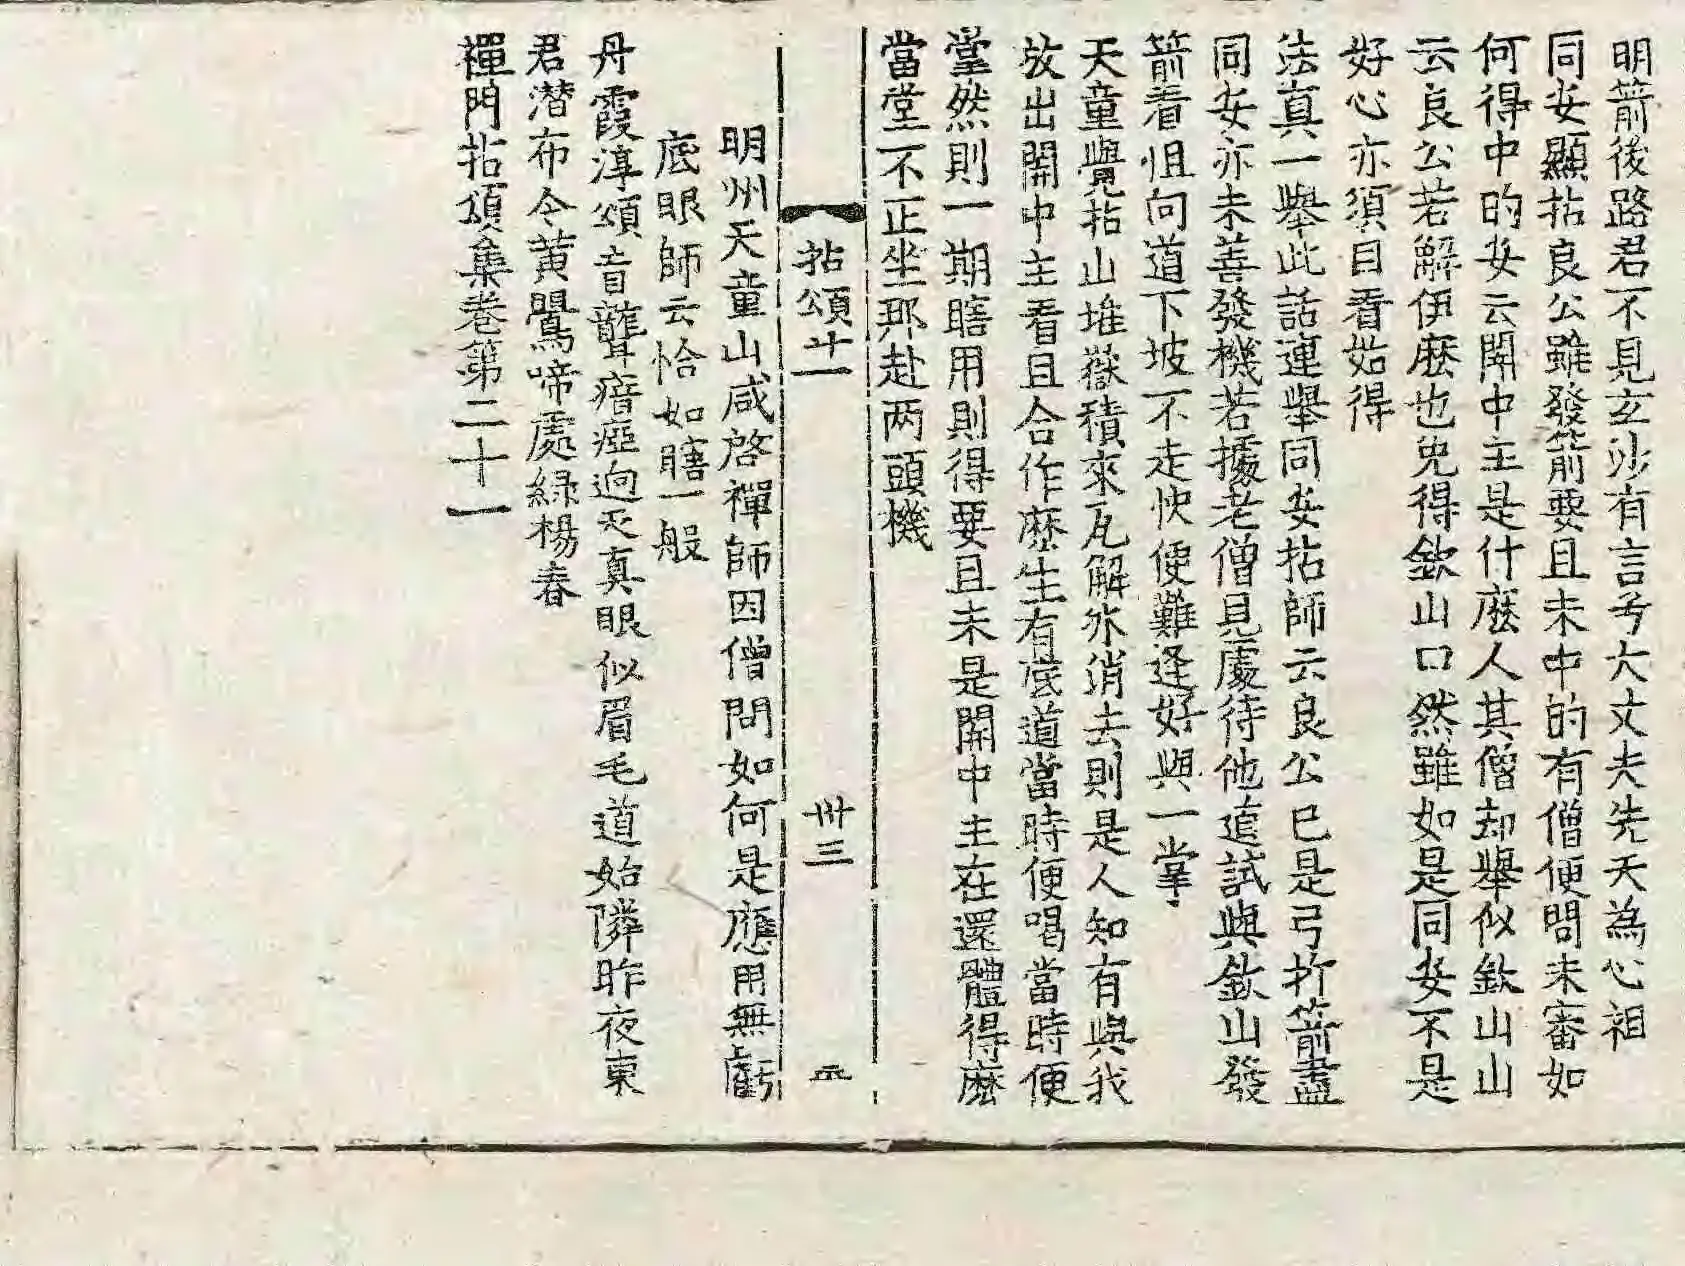 明箭後路君不見玄沙有言兮大丈夫先天為心祖
同安顯拈良公雖發箭要且未中的有僧便問未審如
何得中的安云關中主是什麽人其僧却舉似欽山山
云良公若解伊麽也免得欽山口然雖如是同安不是
好心亦須自看始得
法真一舉此話連舉同安拈師云良公已是弓折箭盡
同安亦未善發機若據老僧見處待他道試與欽山發
箭看但向道下坡不走快便難逢好與一掌
天童覺拈山堆嶽積來瓦解氷消去則是人知有與我
放出關中主看且合作麽生有底道當時便喝當時便
掌然則一期瞎用則得要且未是關中主在還體得麽
當堂不正坐那赴两頭機
拈頌廿一
卅三
明州天童山咸啓禪師因僧問如何是應用無虧
底眼師云恰如瞎一般
丹霞淳頌音聾瘖瘂逈天真眼似眉毛道始隣昨夜東
君潛布令黄鸎啼處緑楊春
禪門拈頌集巻第二十一